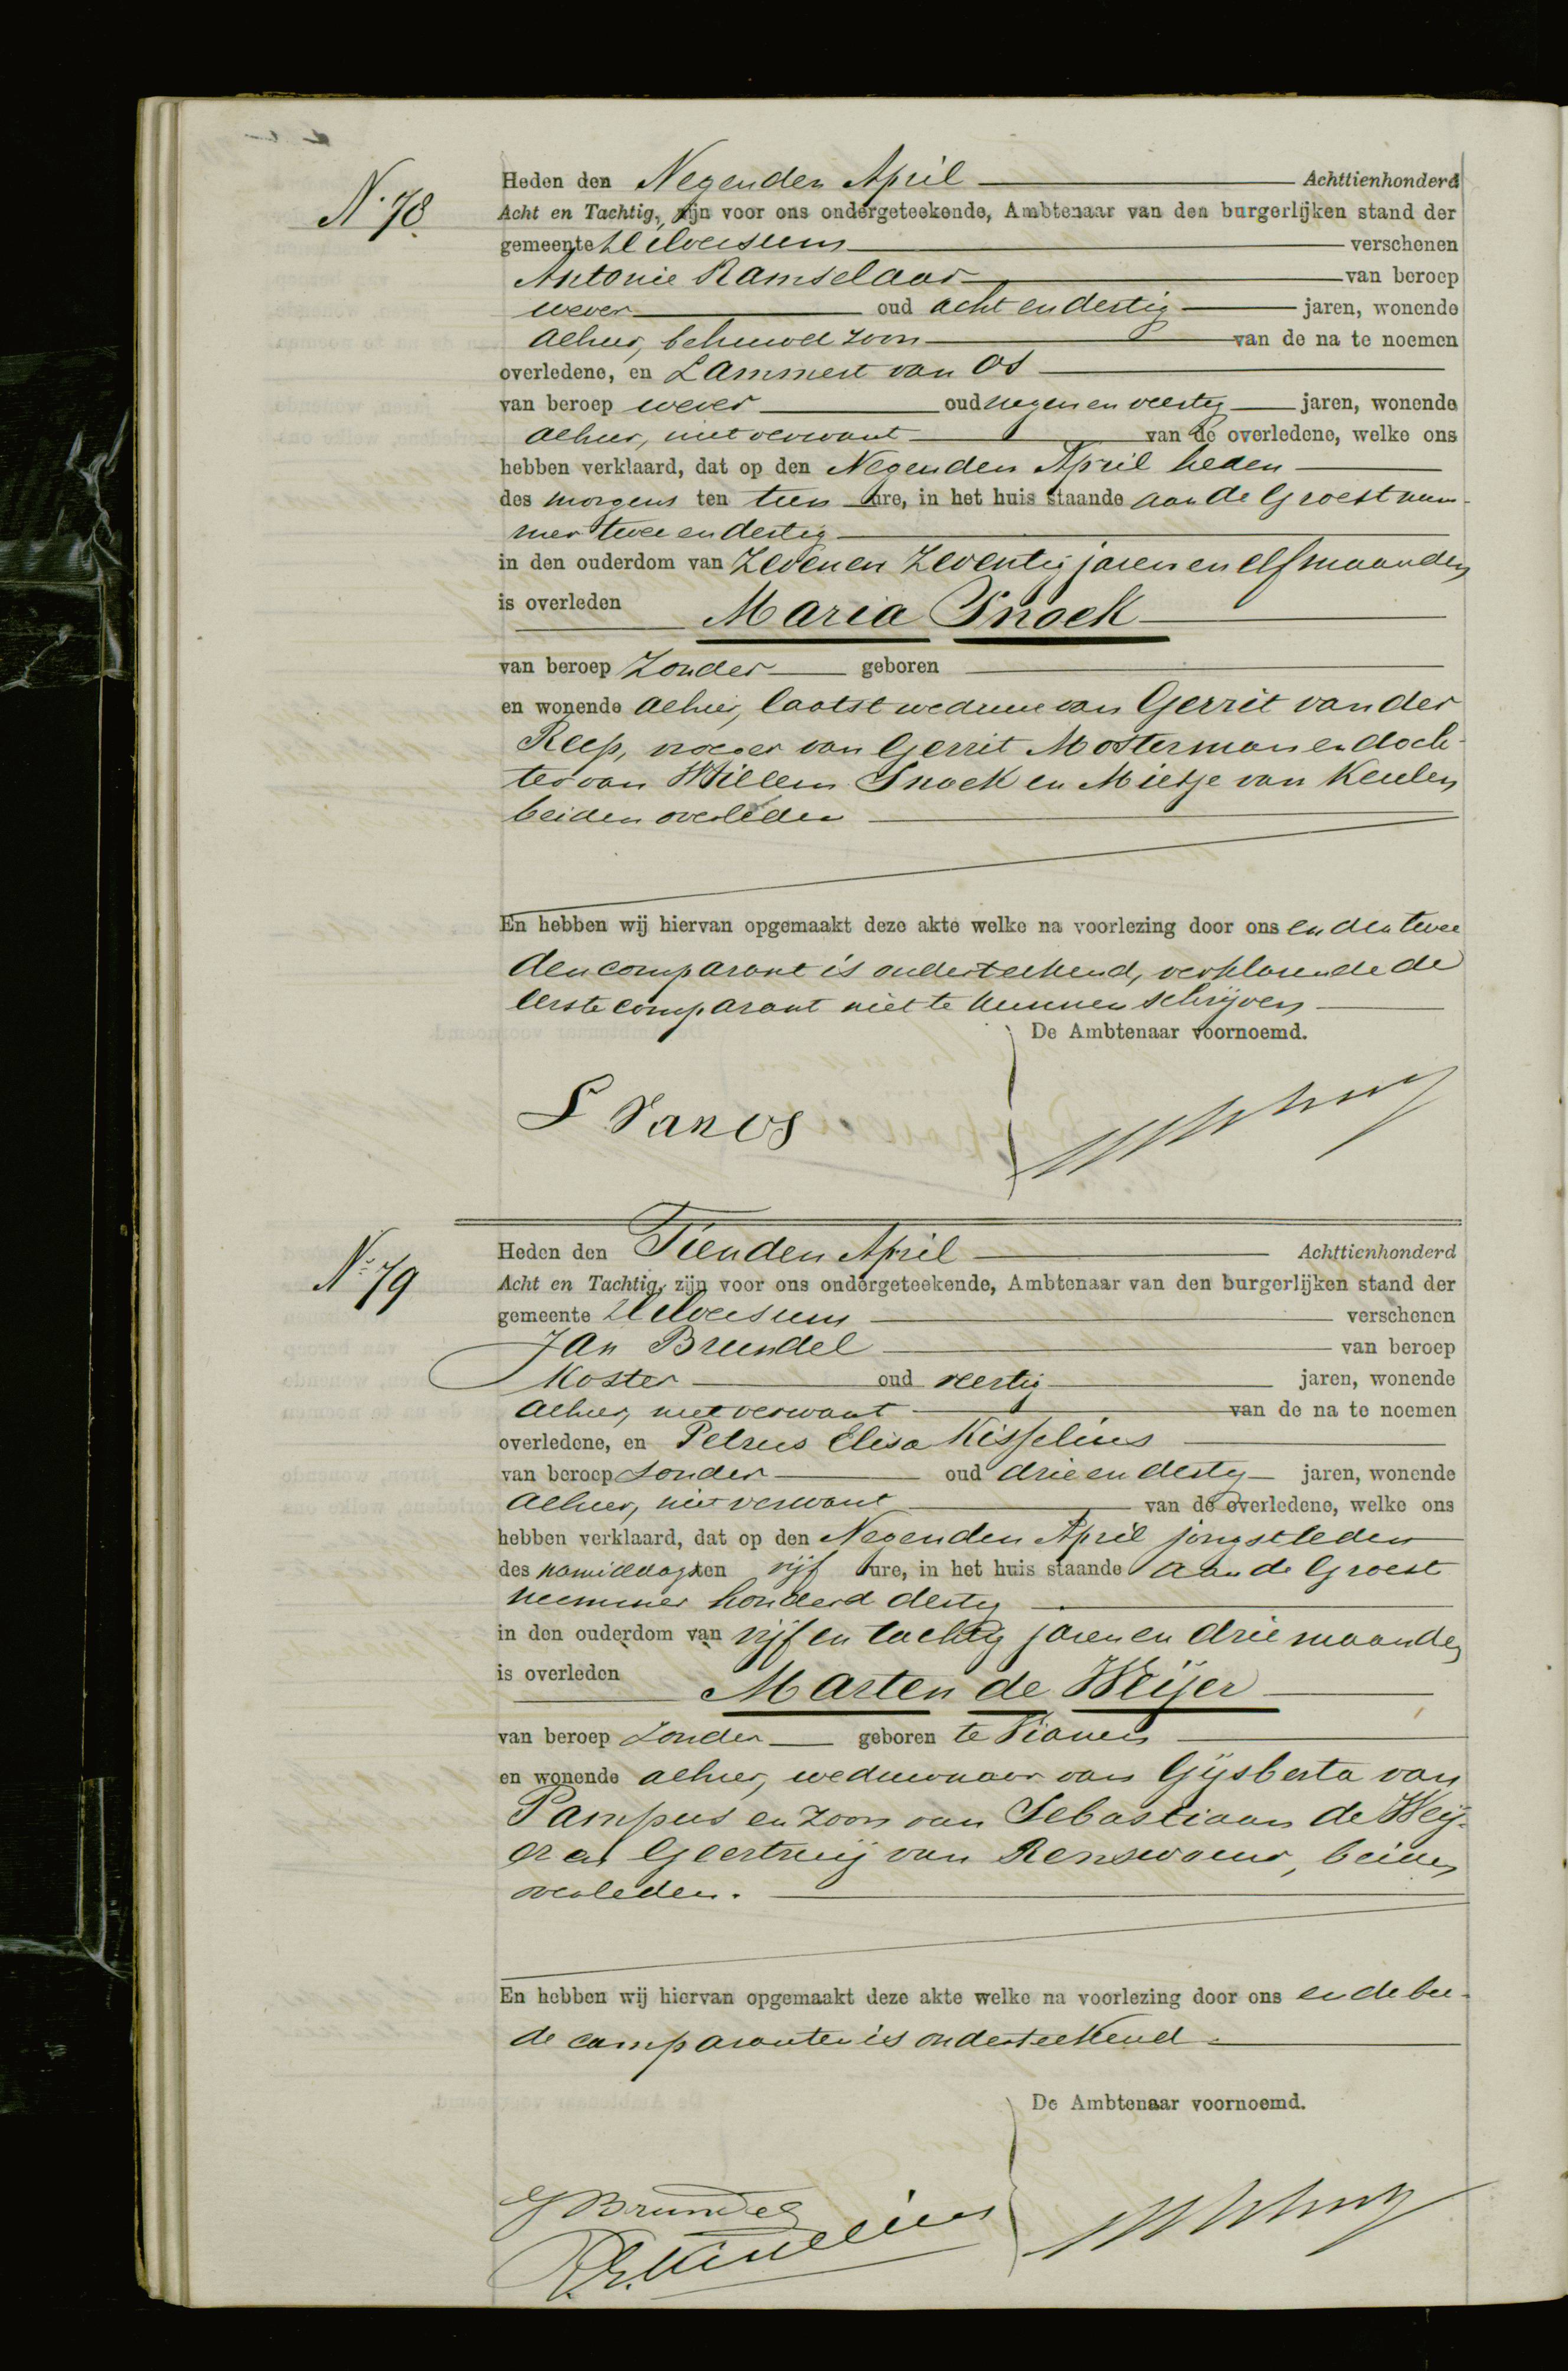 N. 78
Heden den Negenden April Achttienhonderd
Acht en Tachtig, zijn voor ons ondergeteekende, Ambtenaar van den burgerlijken stand der
gemeente Hilversum verschenen
Antonie Ramselaar van beroep
wever oud acht en dertig jaren, wonende
alhier, behuwd zoon van de na te noemen
overledene, en Lammert van Os
van beroep wever oud negen en veertig jaren, wonende
alhier, niet verwant van de overledene, welke ons
hebben verklaard, dat op den Negenden April heden
des morgens ten tien ure, in het huis staande aan de Groest num-
mer twee en dertig
in den ouderdom van zeven en zeventig jaren en elf maanden
is overleden Maria Snoek
van beroep zonder geboren
en wonende alhier, laatst weduwe van Gerrit van der
Reep, vroeger van Gerrit Mosterman en doch-
ter van Willem Snoek en Mietje van Keulen
beiden overleden
En hebben wij hiervan opgemaakt deze akte welke na voorlezing door ons en den twee
den comparant is onderteekend, verklarende de
eerste comparant niet te kunnen schrijven
De Ambtenaar voornoemd.
L van Os
No. 79
Heden den Tienden April Achttienhonderd
Acht en Tachtig, zijn voor ons ondergeteekende, Ambtenaar van den burgerlijken stand der
gemeente Hilversum verschenen
Jan Brundel van beroep
Koster oud veertig jaren, wonende
alhier, niet verwant van de na te noemen
overledene, en Petrus Elisa Kisselius
van beroep zonder oud drie en dertig jaren, wonende
alhier, niet verwant van de overledene, welke ons
hebben verklaard, dat op den Negenden April jongstleden
des namiddags ten vijf ure, in het huis staande aan de Groest
nummer honderd dertig
in den ouderdom van vijf en tachtig jaren en drie maanden
is overleden Marten de Weijer
van beroep zonder geboren te Vianen
en wonende alhier, weduwnaar van Gijsberta van
Pampus en zoon van Sebastiaan de Weij-
er en Geertruij van Renswouw, beiden
overleden.
En hebben wij hiervan opgemaakt deze akte welke na voorlezing door ons en de bei-
de comparanten is onderteekend.
De Ambtenaar voornoemd.
J Brundel
P.E. Kisselius